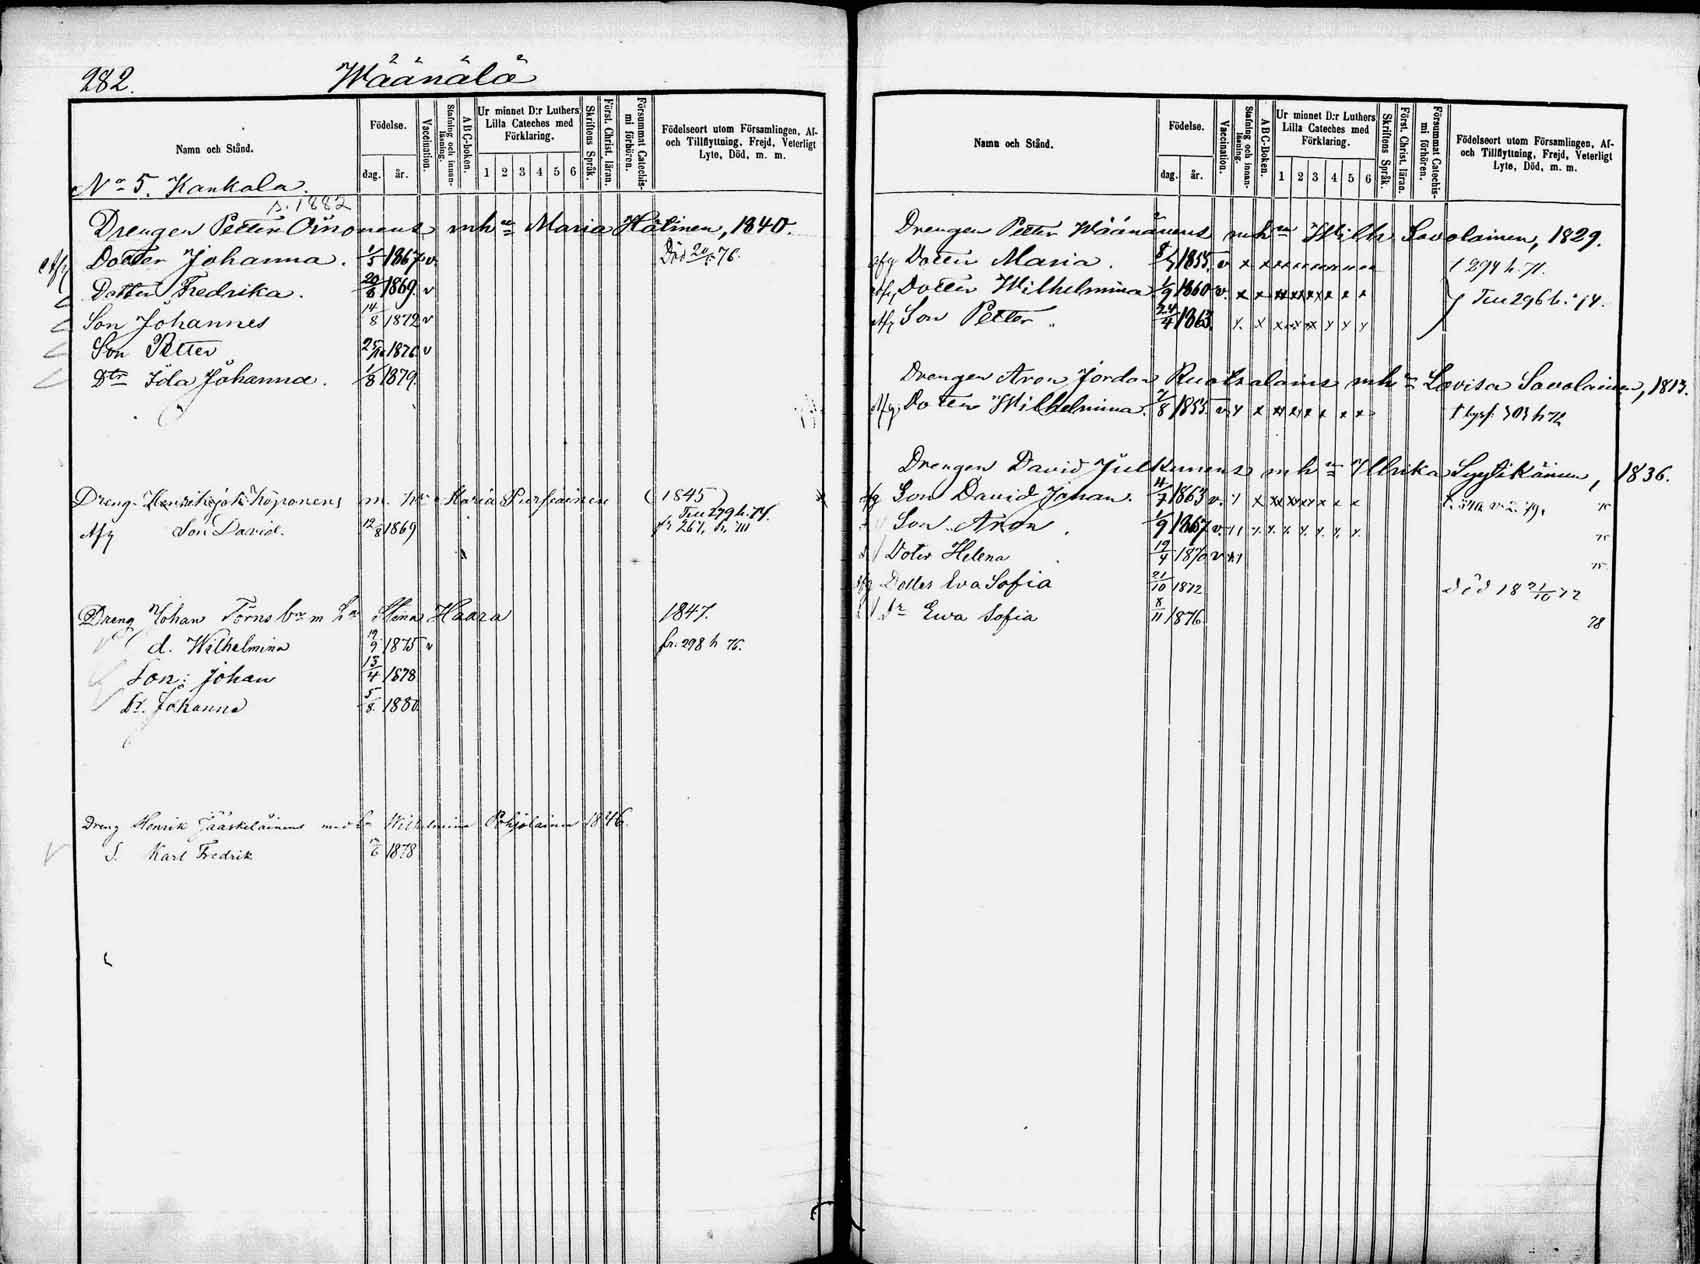 282. Wäänälä
Namn och Stånd.
Födelse.
dag. år.
Vaccination.
Stafning och innanläsning.
A B C-boken.
Ur minnet D:r Luthers Lilla Cateches med Förklaring.
1 2 3 4 5 6
Skriftens Språk.
Först. Christ. läran.
Försummat Catechismi förhören.
Födelseort utom Församlingen, Af- och Tillflyttning, Frejd, Veterligt Lyte, Död, m. m.
No 5. Kankala.
s. 1882
Drengen Petter Oinonens mh Maria Hätinen, 1840.
Afg Dotter Johanna. 1/5 1867 v. Död 20/5 76.
Dotter Fredrika. 20/8 1869 v
Son Johannes 14/8 1872 v
Son Petter 1876 v
Dtr Ida Johanna. 1/8 1879.
Dreng Köponens m. h. Maria (1845)
Till 279 h. 74.
Afg Son David. 12/8 1869 fr 267.
Dreng Johan Törns m hu Stina Haara 1847.
d. Wilhelmina 19/9 1875 v fr. 298 h 76.
Son: Johan 13/4 1878
Dr. Johanna 5/8 1880
Dreng Henrik Jääskeläinens med h Wilhelmina Pohjolainen 1846.
S. Karl Fredrik 1878
Namn och Stånd.
Födelse.
dag. år.
Vaccination.
Stafning och innanläsning.
A B C-Boken.
Ur minnet D:r Luthers Lilla Cateches med Förklaring.
1 2 3 4 5 6
Skriftens Språk.
Först. Christ. läran.
Försummat Catechismi förhören.
Födelseort utom Församlingen, Af- och Tillflyttning, Frejd, Veterligt Lyte, Död, m. m.
Drengen Petter Wäänänens mh Wilh Savolainen, 1829.
afg Dotter Maria. 1855. v x x x x x x x x x x † 294 h. 71.
afg Dotter Wilhelmina 1/9 1860 v. x x x x x x x x x } Till 296 h. 74.
Afg Son Petter 24/4 1863. x x x x x x x x
Drengen Aron Jordan Ruotsalains mh Lovisa Savolainen, 1813.
Afg Dotter Wilhelmina. 7/8 1855. v x x x x x x x x 303 h 72
Drengen David Julkunens mh Ulrika Lyytikäinen, 1836.
afg Son David Johan. 4/7 1863 v. x x x x x x x x
Son Aron. 1/9 1867 v. x x x x x x x
Doter Helena 19/4 1870 v
afg Dotter Eva Sofia 21/10 1872 död 18 21/10 72
Dr Ewa Sofia 8/11 1876 78